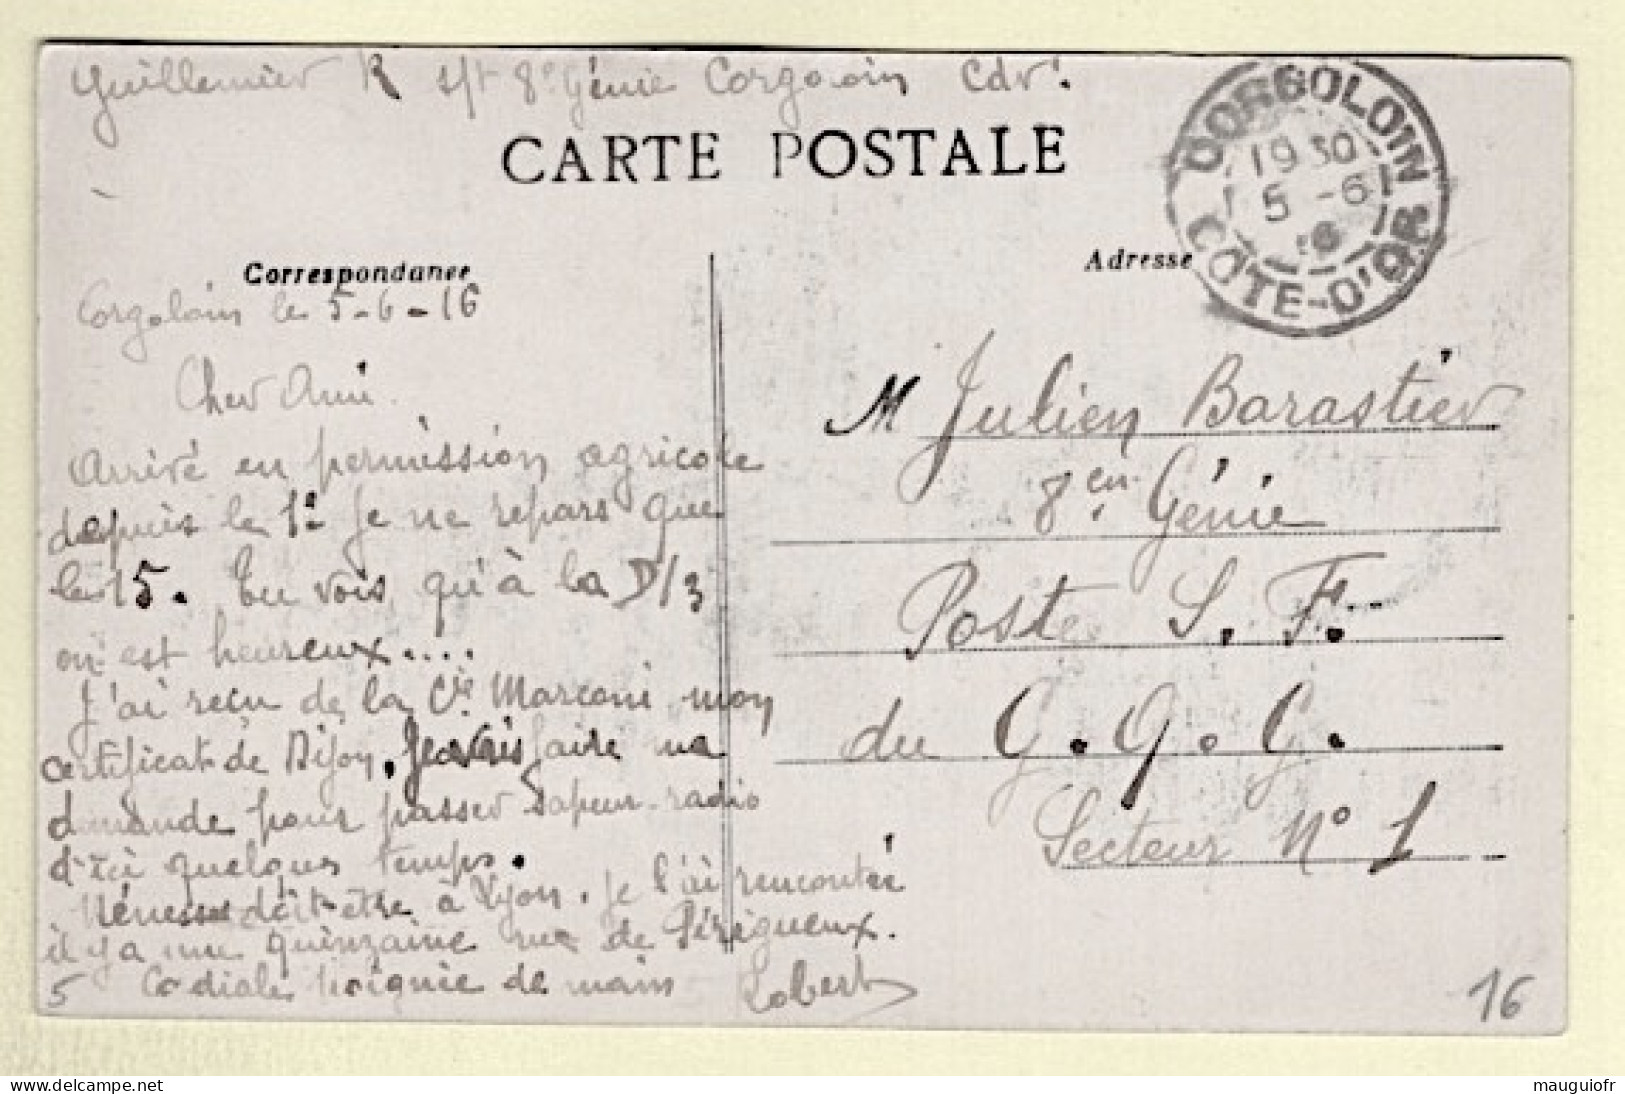 Guillemier R s/t 8e Génie Corgoloin Cdr.
CARTE POSTALE
CORGOLOIN
19 30
5 -6
16
COTE-D'OR
Correspondance
Adresse
Corgoloin le 5-6-16
Cher Ami.
Arrivé en permission agricole
depuis le 1er je ne repars que
le 15. Tu vois qu'à la D/3
on est heureux....
J'ai reçu de la Cie Marconi mon
certificat de Dijon. Je vais faire ma
demande pour passer sapeur-radio
d'ici quelques temps.
Nénesse doit être à Lyon, je l'ai rencontré
il y a une quinzaine rue de Périgueux.
Cordiale poignée de main Robert
5
M Julien Barastier
8en Génie
Poste S. F.
du G. Q. G.
Secteur N° 1
16
www.delcampe.net
mauguiofr